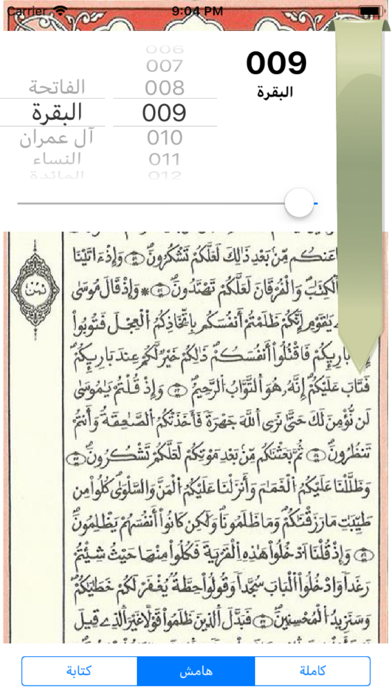 Carrier 9:04 PM
006
007
الفاتحة 008
البقرة 009
آل عمران 010
النساء 011
المائدة 012
009
البقرة
عَنكُم مِّنۢ بَعْدِ ذَٰلِكَ لَعَلَّكُمْ تَشْكُرُونَ وَإِذَ اٰتَيْنَا
اَلْكِتَٰبَ وَالْفُرْقَانَ لَعَلَّكُمْ تَهْتَدُونَ وَإِذْ قَالَ مُوسَىٰ
يَٰقَوْمِ إِنَّكُمْ ظَلَمْتُمُ أَنفُسَكُم بِاتِّخَاذِكُمُ الْعِجْلَ فَتُوبُوٓا۟
بَارِئِكُمْ فَاقْتُلُوٓا۟ أَنفُسَكُمْ ذَٰلِكُمْ خَيْرٌ لَّكُمْ عِندَ بَارِئِكُمْ
فَتَابَ عَلَيْكُمُۥٓ إِنَّهُۥ هُوَ التَّوَّابُ الرَّحِيمُ وَإِذْ قُلْتُمْ يَٰمُوسَىٰ
لَن نُّومِنَ لَكَ حَتَّىٰ نَرَى اللَّهَ جَهْرَةً فَأَخَذَتْكُمُ الصَّٰعِقَةُ وَأَنتُمْ
تَنظُرُونَ ثُمَّ بَعَثْنَٰكُم مِّنۢ بَعْدِ مَوْتِكُمْ لَعَلَّكُمْ تَشْكُرُونَ
وَظَلَّلْنَا عَلَيْكُمُ الْغَمَٰمَ وَأَنزَلْنَا عَلَيْكُمُ الْمَنَّ وَالسَّلْوَىٰ كُلُوا۟ مِن
طَيِّبَٰتِ مَا رَزَقْنَٰكُمْ وَمَا ظَلَمُونَا وَلَٰكِن كَانُوٓا۟ أَنفُسَهُمْ يَظْلِمُونَ
وَإِذْ قُلْنَا ادْخُلُوا۟ هَٰذِهِ الْقَرْيَةَ فَكُلُوا۟ مِنْهَا حَيْثُ شِئْتُمْ
رَغَدًا وَادْخُلُوا۟ الْبَابَ سُجَّدًا وَقُولُوا۟ حِطَّةٌ يُغْفَرْ لَكُمْ خَطَٰيَٰكُمْ
وَسَنَزِيدُ الْمُحْسِنِينَ فَبَدَّلَ الَّذِينَ ظَلَمُوا۟ قَوْلًا غَيْرَ الَّذِى قِيلَ
ثمن
كاملة هامش كتابة